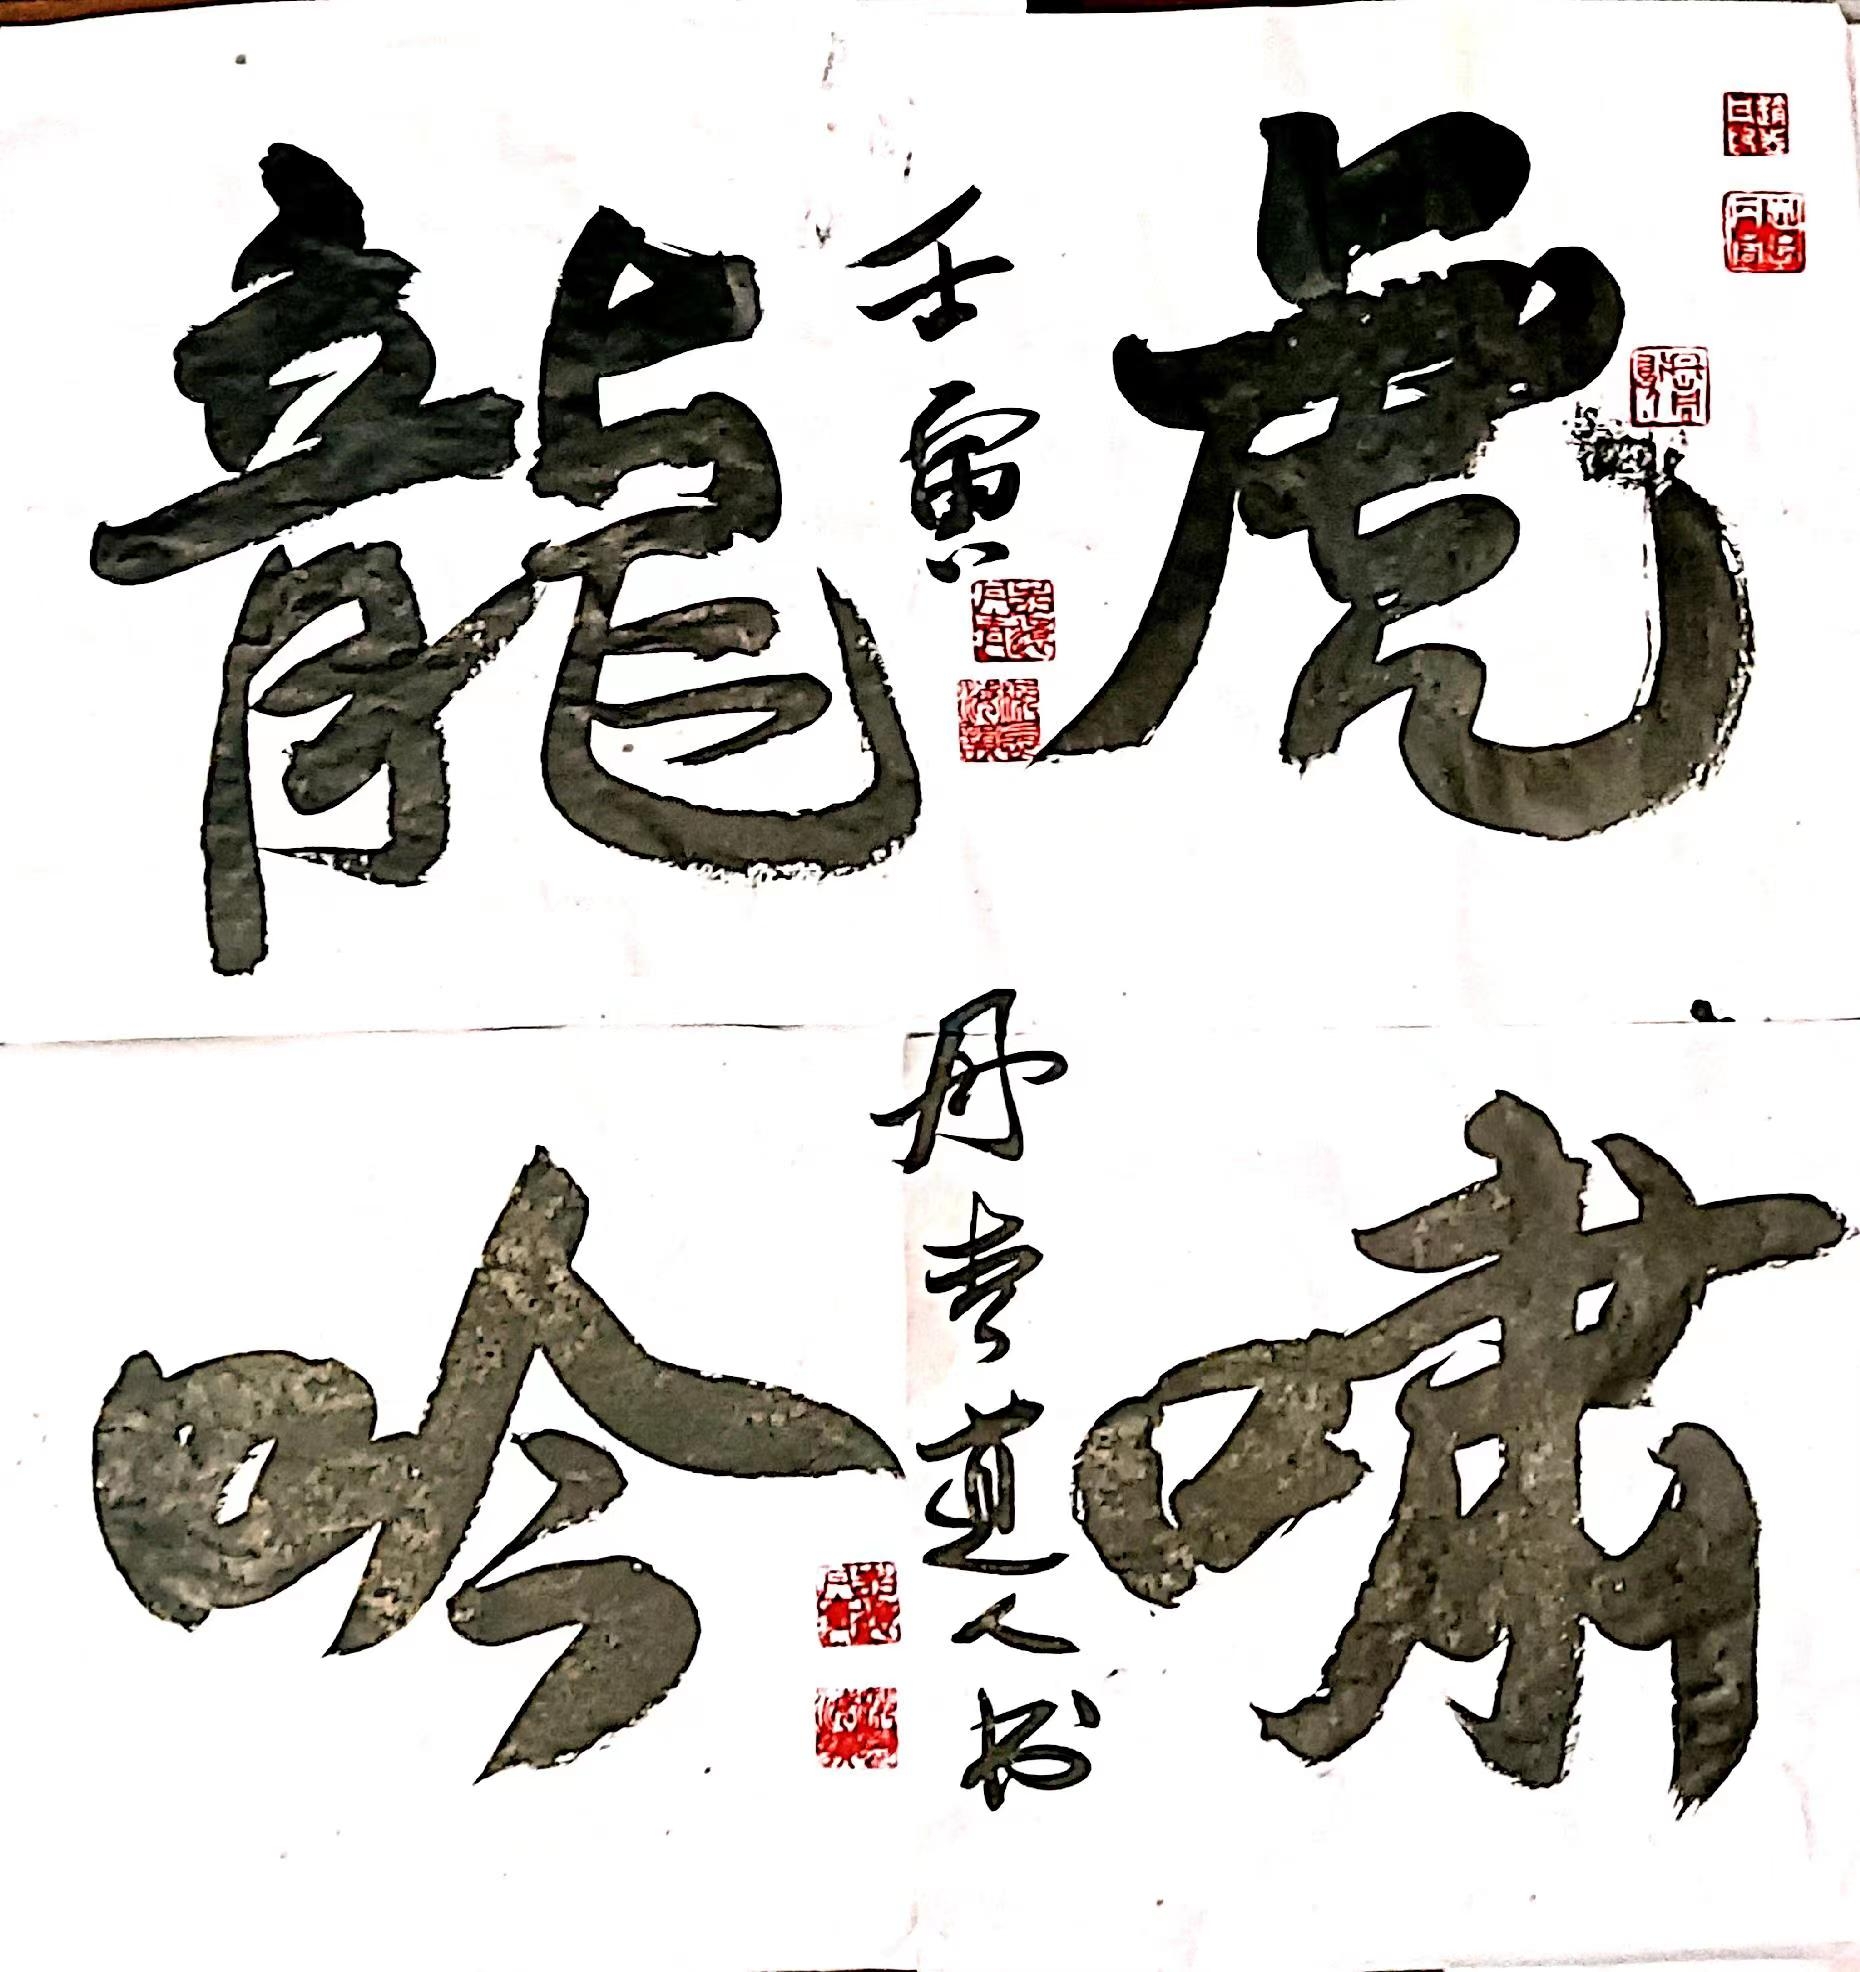 虎啸
龍吟
壬寅
丹青道人书